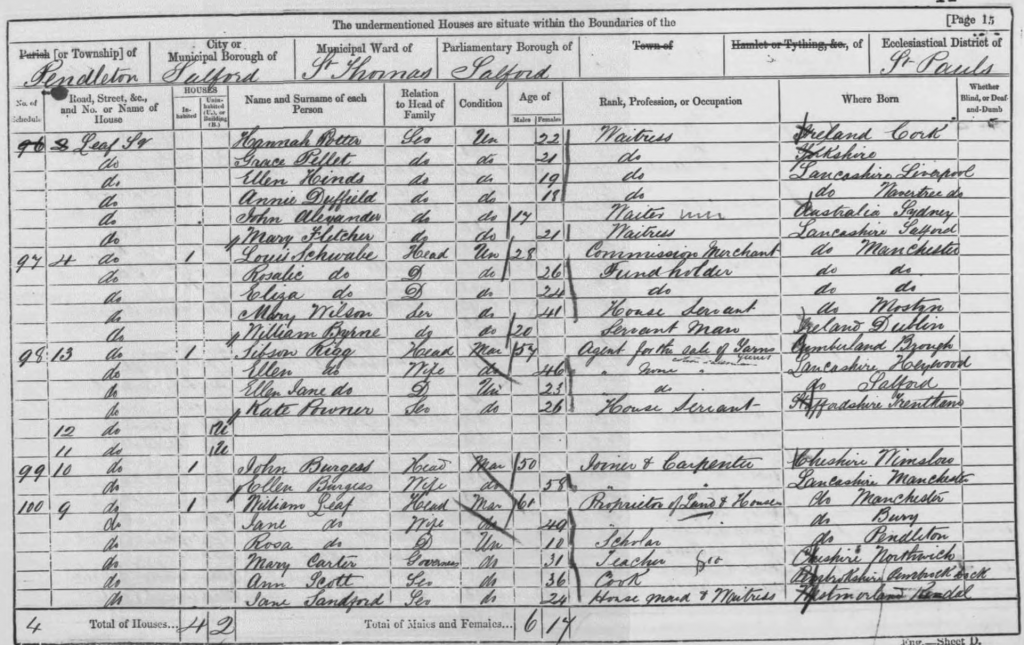 The undermentioned Houses are situate within the Boundaries of the
[Page 15
Parish [or Township] of
City or Municipal Borough of
Municipal Ward of
Parliamentary Borough of
Town of
Hamlet or Tything, &c., of
Ecclesiastical District of
Pendleton Salford St Thomas Salford St Pauls
No. of Schedule
Road, Street, &c., and No. or Name of House
HOUSES
Inhabited
Uninhabited (U.), or Building (B.)
Name and Surname of each Person
Relation to Head of Family
Condition
Age of
Males
Females
Rank, Profession, or Occupation
Where Born
Whether Blind, or Deaf-and-Dumb
96 8 Leaf St Hannah Potter Ser Un 22 Waitress Ireland Cork
do Grace Pellet do do 21 do Yorkshire
do Ellen Hinds do do 19 do Lancashire Liverpool
do Annie Duffield do do 18 do do Wavertree do
do John Alexander do do 17 Waiter Australia Sydney
do Mary Fletcher do do 21 Waitress Lancashire Salford
97 4 do 1 Louis Schwabe Head Un 28 Commission Merchant do Manchester
do Rosalie do D do 26 Fundholder do do
do Eliza do D do 24 do do do
do Mary Wilson Ser do 41 House Servant do Mostin
do William Byrne do do 20 Servant Man Ireland Dublin
98 13 do 1 Rigg Head Mar 54 Agent for the sale of Yarns Cumberland Brough
do Ellen do Wife do 46 " None " Lancashire Heywood
do Ellen Jane do D Un 23 do do Salford
do Kate Powner Ser do 26 House Servant Staffordshire Trentham
12 do
11 do
99 10 do 1 John Burgess Head Mar 50 Joiner & Carpenter Cheshire Wimslow
do Ellen Burgess Wife do 58 " " Lancashire Manchester
100 9 do 1 William Leaf Head Mar 61 Proprietor of Land & House do Manchester
do Jane do Wife do 49 do Bury
do Rosa do D Un 10 Scholar do Pendleton
do Mary Carter Governess do 31 Teacher Cheshire Northwich
do Ann Scott Ser do 36 Cook Pembrokshire Pembrock Dock
do Jane Sandford Ser do 24 House Maid & Waitress Westmorland Kendal
4 Total of Houses... 4 2 Total of Males and Females... 6 17
Eng.—Sheet D.